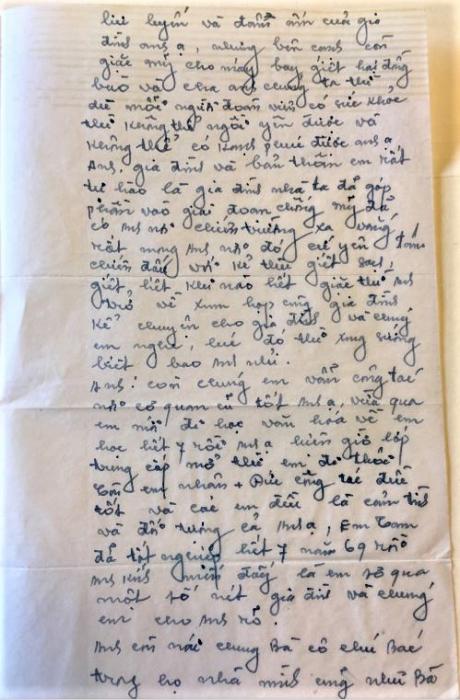 lưu luyến và đầm ấm của gia
đình anh ạ, nhưng bên cạnh còn
giặc mỹ cho máy bay giết hại đồng
bào và cha anh chúng ta thì
dù mỗi người đoàn viên có sức khỏe
thì không thể ngồi yên được và
không thể có hạnh phúc được anh ạ
Anh, gia đình và bản thân em rất
tự hào là gia đình nhà ta đã góp
phần vào giai đoạn chống mỹ đã
có anh nơi chiến trường xa vắng
rất mong anh nơi đó cứ yên tâm
chiến đấu với kẻ thù giết sạch,
giết hết khi nào hết giặc thì anh
trở về xum họp cùng gia đình
kể chuyện cho gia đình và chúng
em nghe, lúc đó thì xung sướng
biết bao anh nhỉ.
Anh! còn chúng em vẫn công tác
nơi cơ quan cũ tốt anh ạ, vừa qua
em mới đi học văn hóa về em
học hết 7 rồi anh ạ bây giờ lớp
trung cấp mở thì em đi thôi
Còn em nhân + công tác đều
tốt và các em đều là cảm tình
và đối tượng cả anh ạ, Em Cam
đã tốt nghiệp hết 7 năm 69 rồi
Anh kính mến đấy là em sơ qua
một số nét gia đình và chúng
em cho anh rõ.
Anh còn nói chung Bà cô chú Bác
trong họ nhà mình cũng như Bà